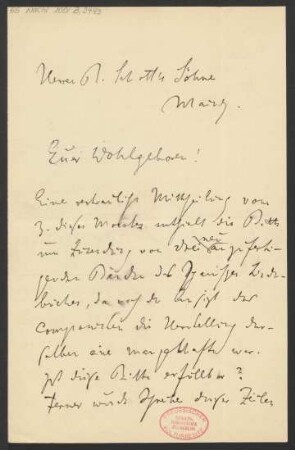 Herrn B. Schott's Söhne
Mainz.
Euer Wohlgeboren!
Eine vertrauliche Mittheilung vom
3. dieses Monates enthielt die Bitte
um Zusendung von drei neu anzuferti-
genden Bänden des Spanischen Lieder-
buches, da nach der Ansicht des
Componisten die Herstellung der-
selben eine mangelhafte war.
Ist diese Bitte erfüllbar?
Ferner würde Schreiber dieser Zeilen